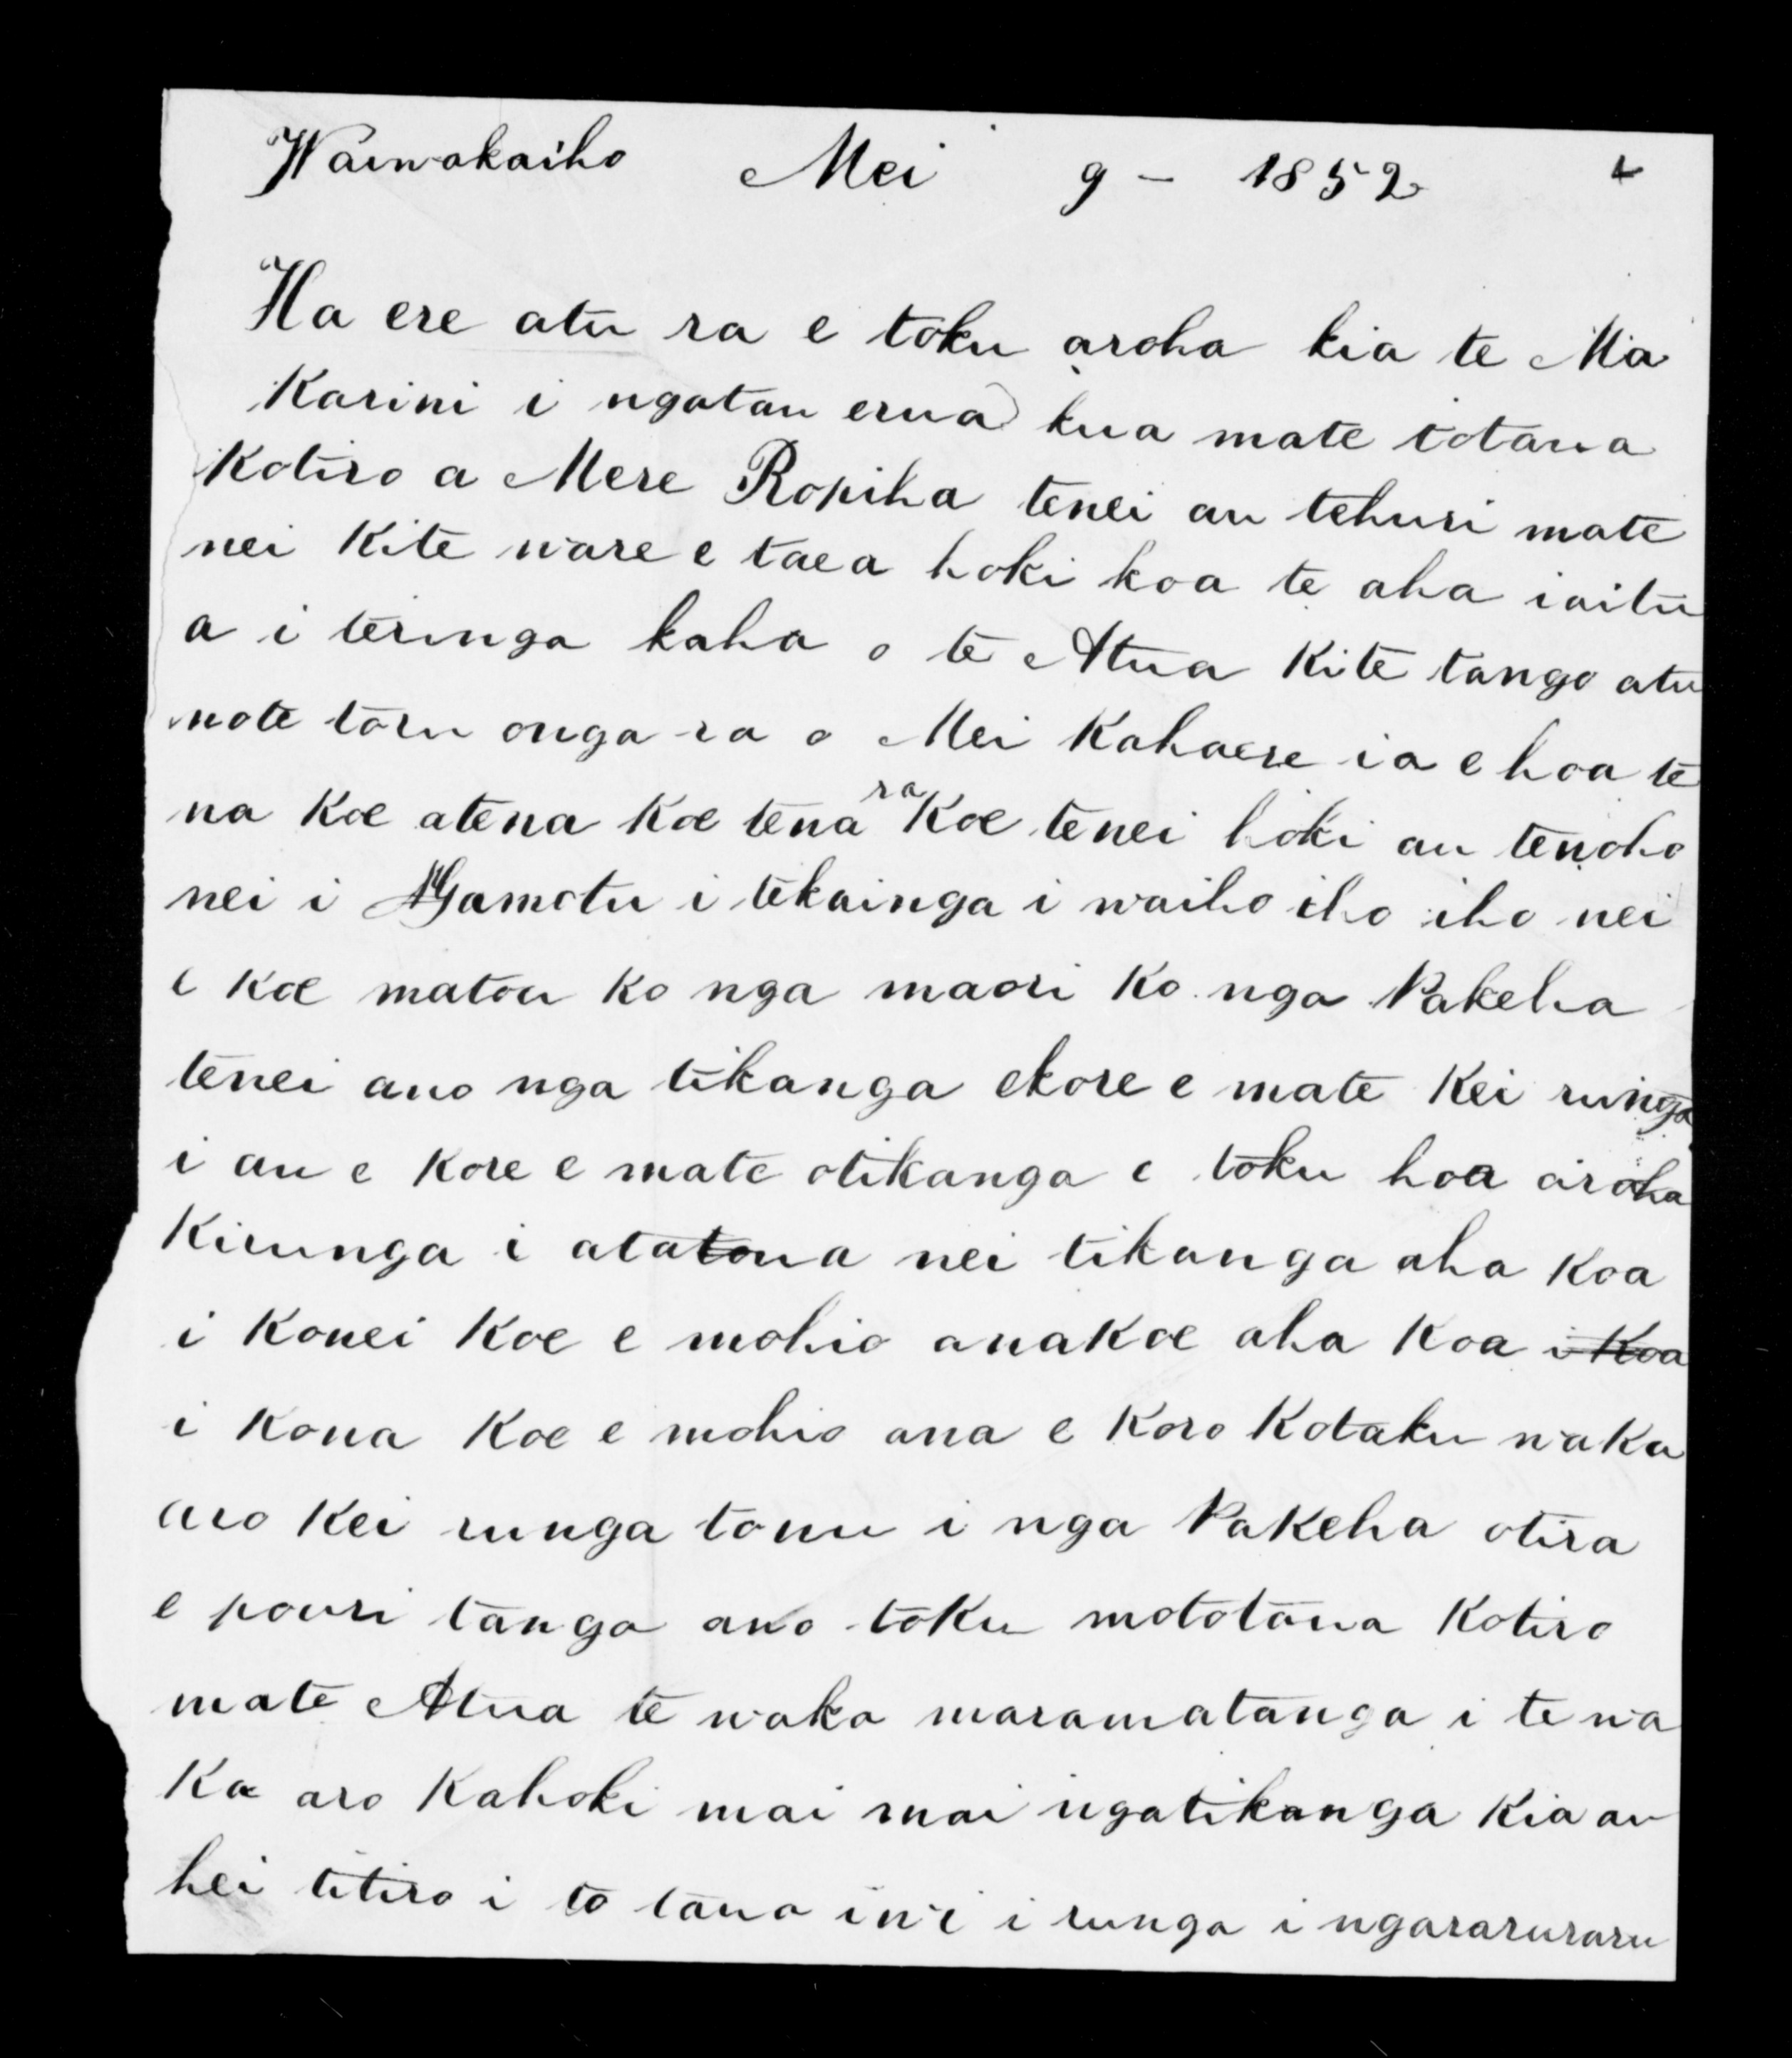 Waiwakaiho Mei 9 - 1852
Ha ere atu ra e toku aroha kia te Ma
Karini i ngatau erua kua mate totaua
Kotiro a Mere Ropiha tenei au tehuri mate
nei Kite ware e taea hoki koa te aha iaitu
a i teringa kaha o te Atua Kite tango atu
note toru onga ra o Mei Kahaere ia e hoa te
na Koe atena Koe tena ra Koe tenei hoki au tenoho
nei i Ngamotu i tekainga i waiho iho iho nei
e Koe matou ko nga maori Ko nga Pakeha
tenei ano nga tikanga ekore e mate Kei runga
i au e Kore e mate otikanga e toku hoa aroha
Kirunga i atatoua nei tikanga aha Koa
i Konei Koe e mohio anaKoe aha Koa i Koa
i Kona Koe e mohio ana e Koro Kotaku waka
aro Kei runga tonu i nga Pakeha otira
e pouri tanga ano toku mototaua Kotiro
mate Atua te waka maramatanga i te wa
Ka aro Kahoki mai mai ngatikanga Kia au
hei titiro i to taua iwi i runga i ngararuraru